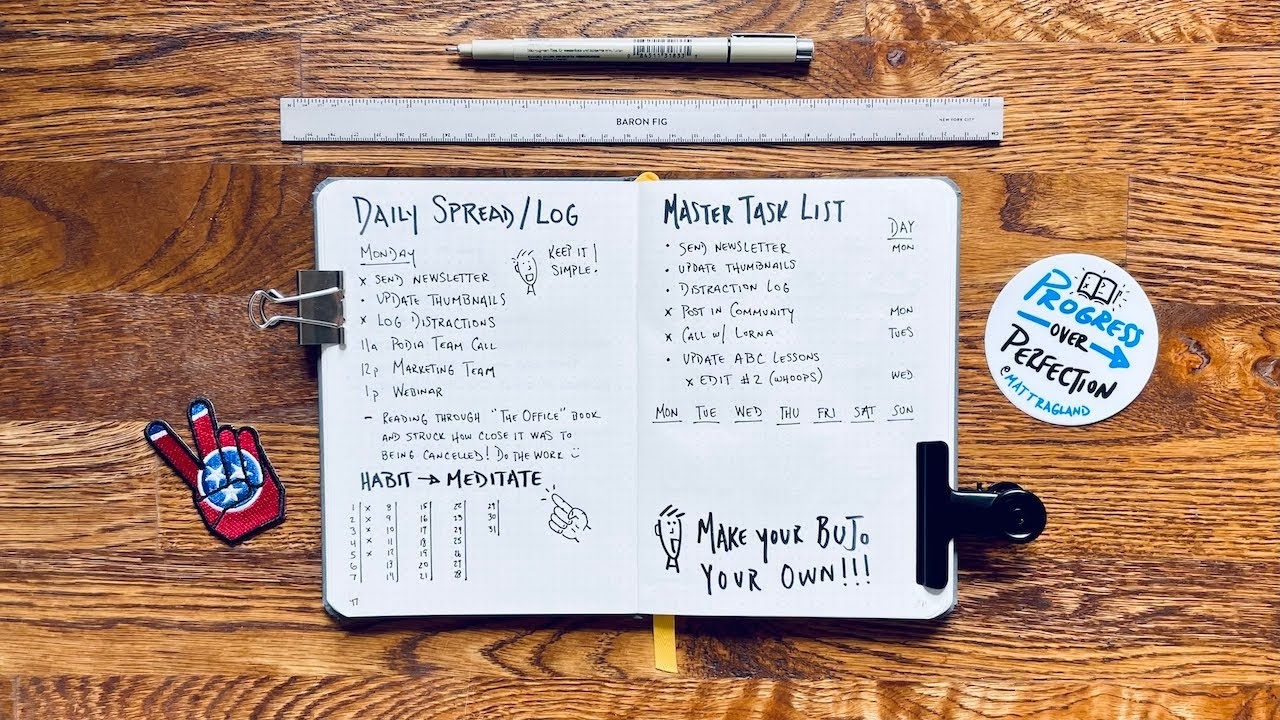 BARON FIG
NEW YORK CITY
DAILY SPREAD/LOG
MONDAY
KEEP IT
SIMPLE!
x SEND NEWSLETTER
• UPDATE THUMBNAILS
x LOG DISTRACTIONS
11a PODIA TEAM CALL
12p MARKETING TEAM
1p WEBINAR
– READING THROUGH "THE OFFICE" BOOK
AND STRUCK HOW CLOSE IT WAS TO
BEING CANCELLED! DO THE WORK
HABIT → MEDITATE
1 x 8 15 22 29
2 x 9 16 23 30
3 x 10 17 24 31
4 x 11 18 25
5 x 12 19 26
6 13 20 27
7 14 21 28
47
MASTER TASK LIST
DAY
• SEND NEWSLETTER MON
• UPDATE THUMBNAILS
• DISTRACTION LOG
x POST IN COMMUNITY MON
x CALL W/ LORNA TUES
• UPDATE ABC LESSONS
x EDIT #2 (WHOOPS) WED
MON TUE WED THU FRI SAT SUN
MAKE YOUR BUJO
YOUR OWN!!!
PROGRESS
OVER
PERFECTION
@MATTRAGLAND